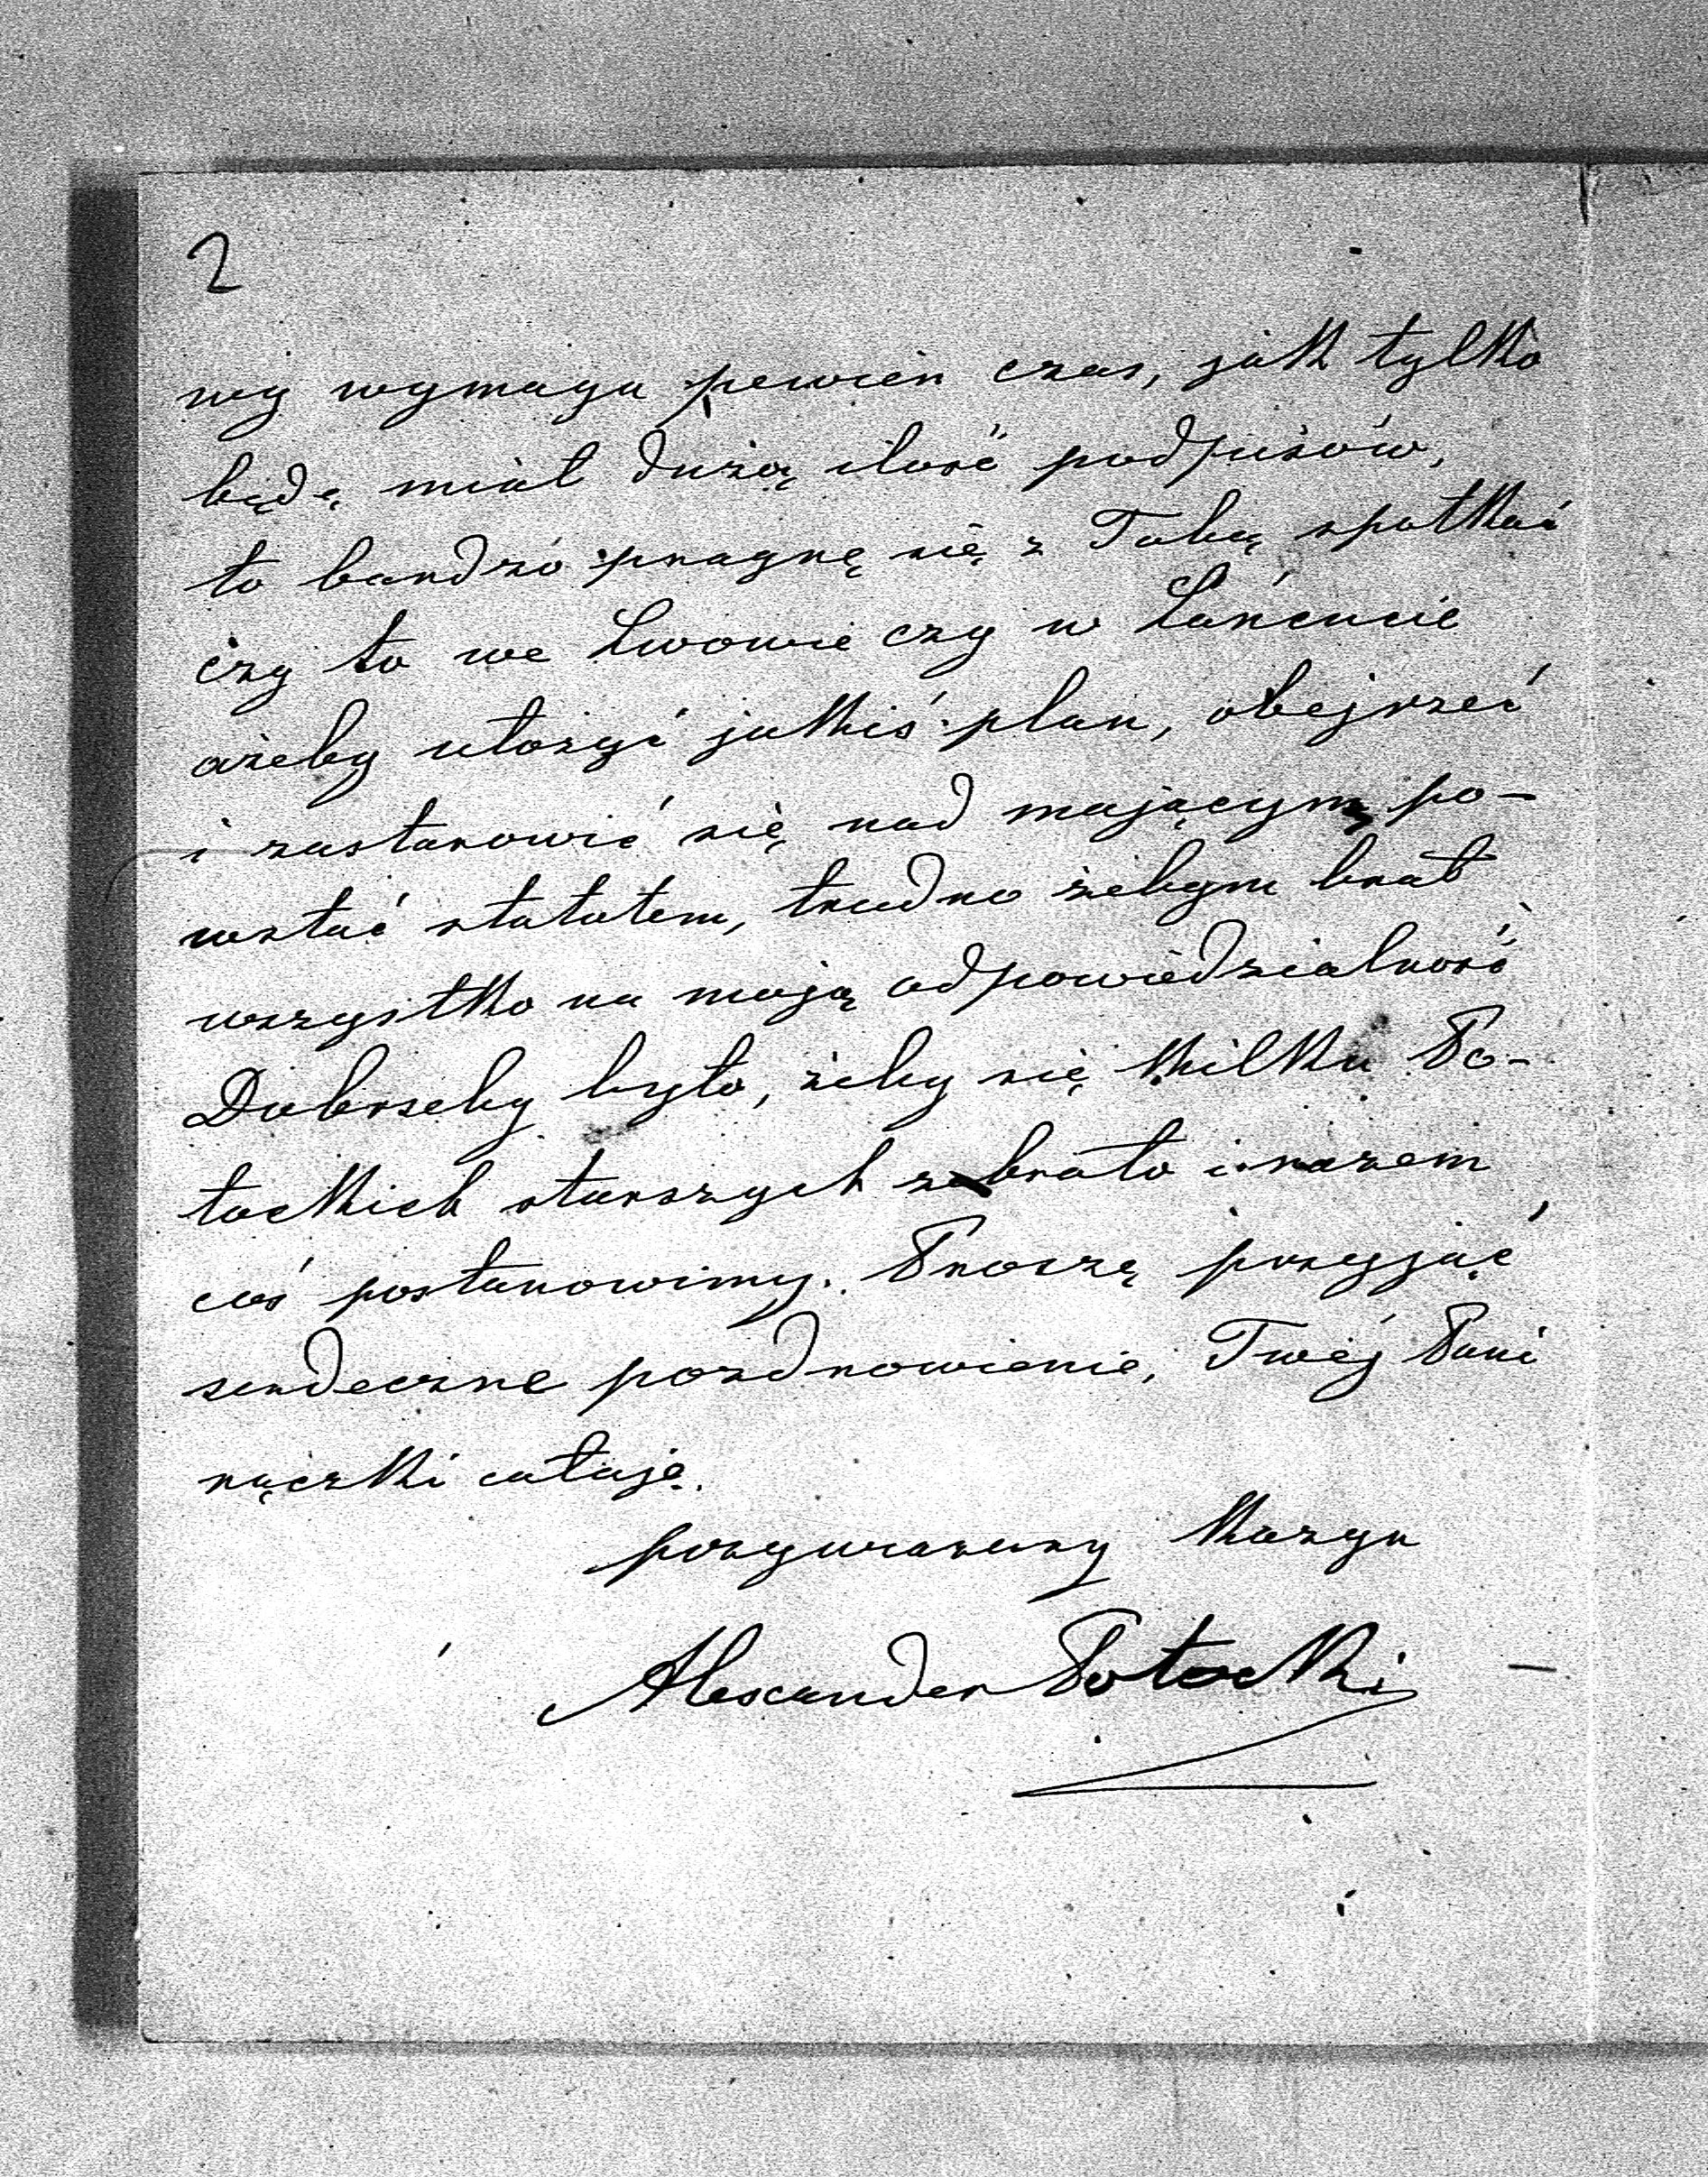 2
ny wymaga pewien czas, jak tylko
będę miał dużą ilość podpisów,
to bardzo pragnę się z Tobą spotkać
czy to we Lwowie czy w Łańcucie
ażeby ułożyć jakiś plan, obejrzeć
i zastanowić się nad mającym po-
wstać statutem, trudno żebym brał
wszystko na moją odpowiedzialność
Dobrzeby było, żeby się kilku Po-
tockich starszych zebrało i razem
coś postanowimy. Proszę przyjąć
serdeczne pozdrowienie, Twéj Pani
rączki całuję.
przywiązany Kuzyn
Alexander Potocki